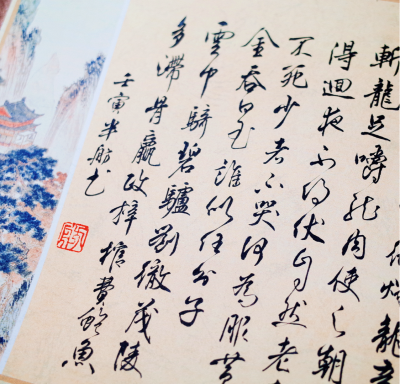 燭龍
斬龍足嚼龙肉使之朝
得迴夜不得伏自然老
不死少者不哭何為服黄
金吞白玉誰似任公子
雲中騎碧驢劉徹茂陵
多滯骨嬴政梓棺費鮑魚
壬寅半舫书